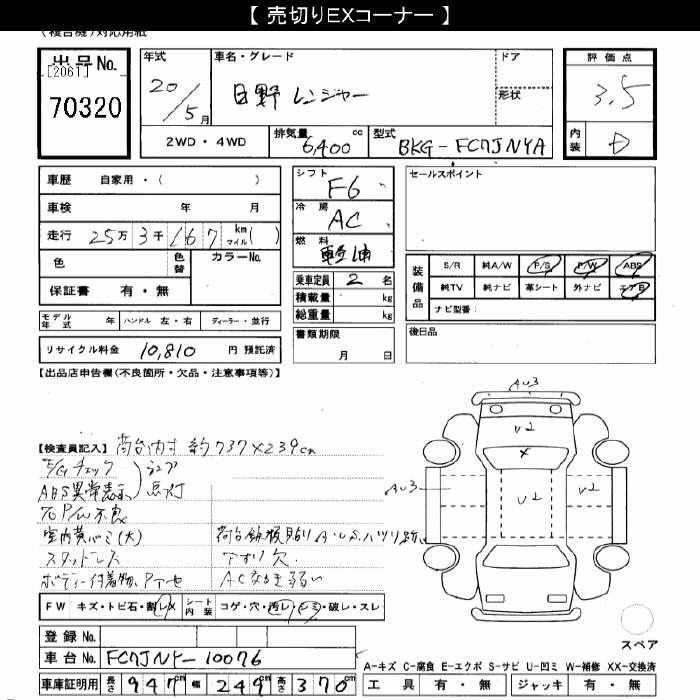 【 売切りEXコーナー 】
(複合機)対応用紙
出品No.
[2061]
70320
年式
20/5月
車名・グレード
日野レンジャー
ドア
形状
評価点
3.5
内装
D
2WD・4WD
排気量
6,400 cc
型式
BKG-FC7JNYA
車歴 自家用・( )
車検 年 月
走行 25万 3千 167 km マイル( )
色 色替 カラーNo.
保証書 有・無
シフト
F6
冷房
AC
燃料
軽油
乗車定員 2 名
積載量 kg
総重量 kg
書類期限
月 日
セールスポイント
装備品
S/R 純A/W P/S P/W ABS
純TV 純ナビ 革シート 外ナビ エアB
ナビ型番:
後日品
モデル年式 年 ハンドル 左・右 ディーラー・並行
リサイクル料金 10,810 円 預託済
【出品店申告欄(不良箇所・欠品・注意事項等)】
【検査員記入】 荷台内寸 約737×239cm
E/Gチェック
ABS異常表示
ランプ点灯
P/W不良
室内黄ハミ(大)
荷台鋼板貼り A・U・S・ハツリ
スタッドレス
アオリ欠
ボディー付着物、
AC効き弱い
FW キズ・トビ石・割レ× シート内装 コゲ・穴・汚レ・シミ・破レ・スレ
登録No.
車台No. FC7JNY-10076
車庫証明用 長さ 947cm 幅 249cm 高さ 370cm
AU3
U2
×
AU3
U2
U2
スペア
A-キズ C-腐食 E-エクボ S-サビ U-凹ミ W-補修 XX-交換済
工具 有・無 ジャッキ 有・無